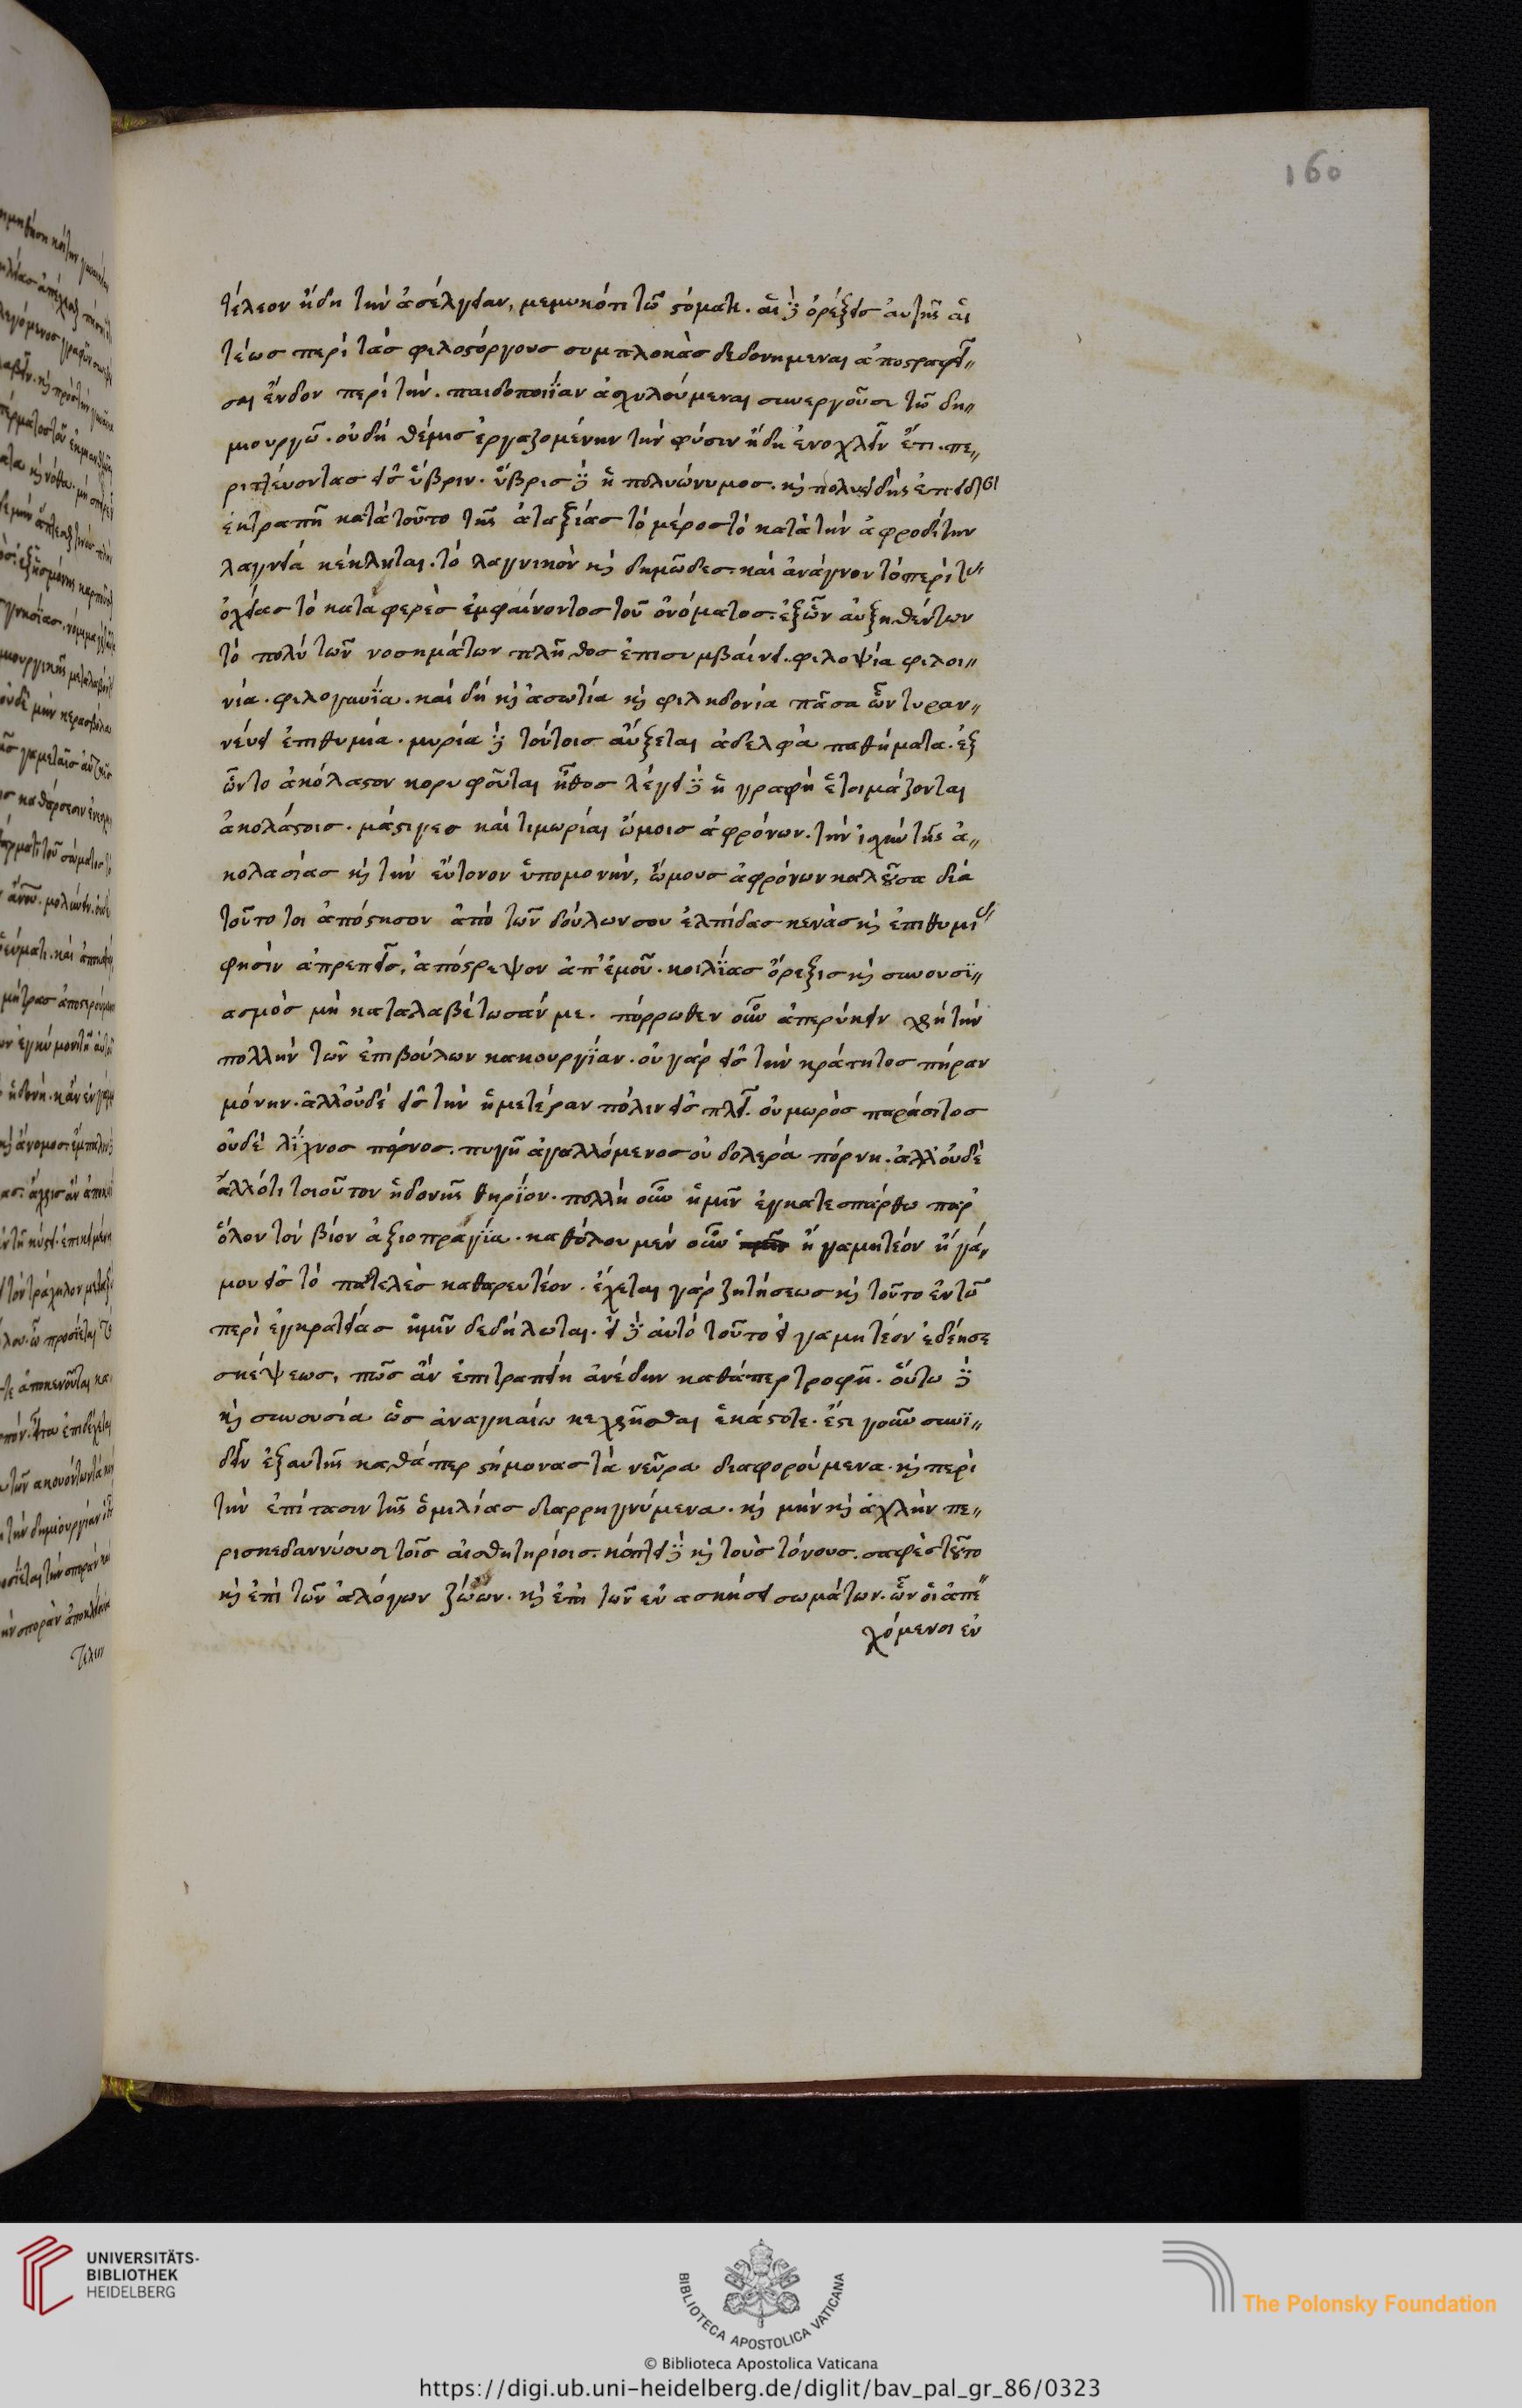 160
τέλεον ἤδη τὴν ἀσέλγειαν, μεμυκότι τῶ στόματι. αἱ δὲ ὀρέξεις αὐτῆς αἱ
τέως περὶ τὰς φιλοστόργους συμπλοκὰς δεδονημεναι ἀποστραφεῖ〃
σαι ἔνδον περὶ τὴν. παιδοποιΐαν ἀσχολούμεναι συνεργοῦσι τῶ δη〃
μιουργῶ. οὐ δὴ θέμις ἐργαζομένην τὴν φύσιν ἤδη ἐνοχλεῖν ἔτι. πε〃
ριττεύοντας εἰς ὕβριν. ὕβρις δὲ ἡ πολυώνυμος. καὶ πολυειδὴς ἐπειδὰν
ἐκτραπῆ κατὰ τοῦτο τῆς ἀταξίας τὸ μέρος τὸ κατὰ τὴν ἀφροδίτην
λαγνεία κέκληται. τὸ λαγνικὸν καὶ δημῶδες. καὶ ἀναγνον τὸ περὶ τὰς
ὀχείας τὸ καταφερὲς ἐμφαίνοντος τοῦ ὀνόματος. ἐξ ὧν αὐξηθέντων
τὸ πολὺ τῶν νοσημάτων πλῆθος ἐπισυμβαίνει. φιλοψία φιλοι〃
νία. φιλογυνΐα. καὶ δὴ καὶ ἀσωτία καὶ φιληδονία πᾶσα ὧν τυραν〃
νεύει ἐπιθυμία. μυρία δὲ τούτοις αὔξεται ἀδελφὰ παθήματα. ἐξ
ὧν το ἀκόλαστον κορυφοῦται ἦθος λέγει δὲ ἡ γραφὴ ἑτοιμάζονται
ἀκολάστοις. μάστιγες καὶ τιμωρίαι ὤμοις ἀφρόνων. τὴν ἰσχὺν τῆς ἀ〃
κολασίας καὶ τὴν εὔτονον ὑπομονὴν, ὤμους ἀφρόνων καλοῦσα διὰ
τοῦτο τοι ἀπόστησον ἀπὸ τῶν δούλων σου ἐλπίδας κενὰς καὶ ἐπιθυμίας
φησὶν ἀπρεπεῖς, ἀπόστρεψον ἀπ᾽ ἐμοῦ. κοιλΐας ὄρεξις καὶ συνουσϊ〃
ασμὸς μὴ καταλαβέτωσάν με. πόρρωθεν οὖν ἀπερύκειν χρὴ τὴν
πολλὴν τῶν ἐπιβούλων κακουργΐαν. οὐ γὰρ εἰς τὴν κράτητος πήραν
μόνην. ἀλλ᾽ οὐδὲ εἰς τὴν ἡμετέραν πόλιν εἰς πλεῖ. οὐ μωρὸς παράσιτος
οὐδὲ λΐχνος πόρνος. πυγῆ ἀγαλλόμενος οὐ δολερὰ πόρνη. ἀλλ᾽ οὐδὲ
ἄλλό τι τοιοῦτον ἡδονῆς θηρΐον. πολλὴ οὖν ἡμῖν ἐγκατεσπάρθω παρ᾽
ὅλον τὸν βίον ἀξιοπραγΐα. καθόλου μὲν οὖν ἢ γαμητέον ἢ γά〃
μου εἰς τὸ παντελὲς καθαρευτέον. ἔχεται γὰρ ζητήσεως καὶ τοῦτο ἐν τῶ
περὶ ἐγκρατείας ἡμῖν δεδήλωται. εἰ δὲ αὐτὸ τοῦτο εἰ γαμητέον ἐδέησε
σκέψεως, πῶς ἂν ἐπιτραπείη ἀνέδην καθάπερ τροφῆ. οὕτω δὲ
καὶ συνουσία ὡς ἀναγκαίω κεχρῆσθαι ἑκάστοτε. ἔστι γοῦν συνϊ〃
δεῖν ἐξ αυτῆς καθάπερ στήμονας τὰ νεῦρα διαφορούμενα. καὶ περὶ
τὴν ἐπίτασιν τῆς ὁμιλίας διαρρηγνύμενα. καὶ μὴν καὶ ἀχλὺν πε〃
ρισκεδαννύουσι τοῖς αἰσθητηρίοις. κόπτει δὲ καὶ τοὺς τόνους. σαφὲς τοῦτο
καὶ ἐπὶ τῶν ἀλόγων ζώων. καὶ ἐπὶ τῶν ἐν ασκήσει σωμάτων. ὧν οἱ ἀπε〃
χόμενοι ἐν
UNIVERSITÄTS-
BIBLIOTHEK
HEIDELBERG
BIBLIOTECA APOSTOLICA VATICANA
The Polonsky Foundation
© Biblioteca Apostolica Vaticana
https://digi.ub.uni-heidelberg.de/diglit/bav_pal_gr_86/0323